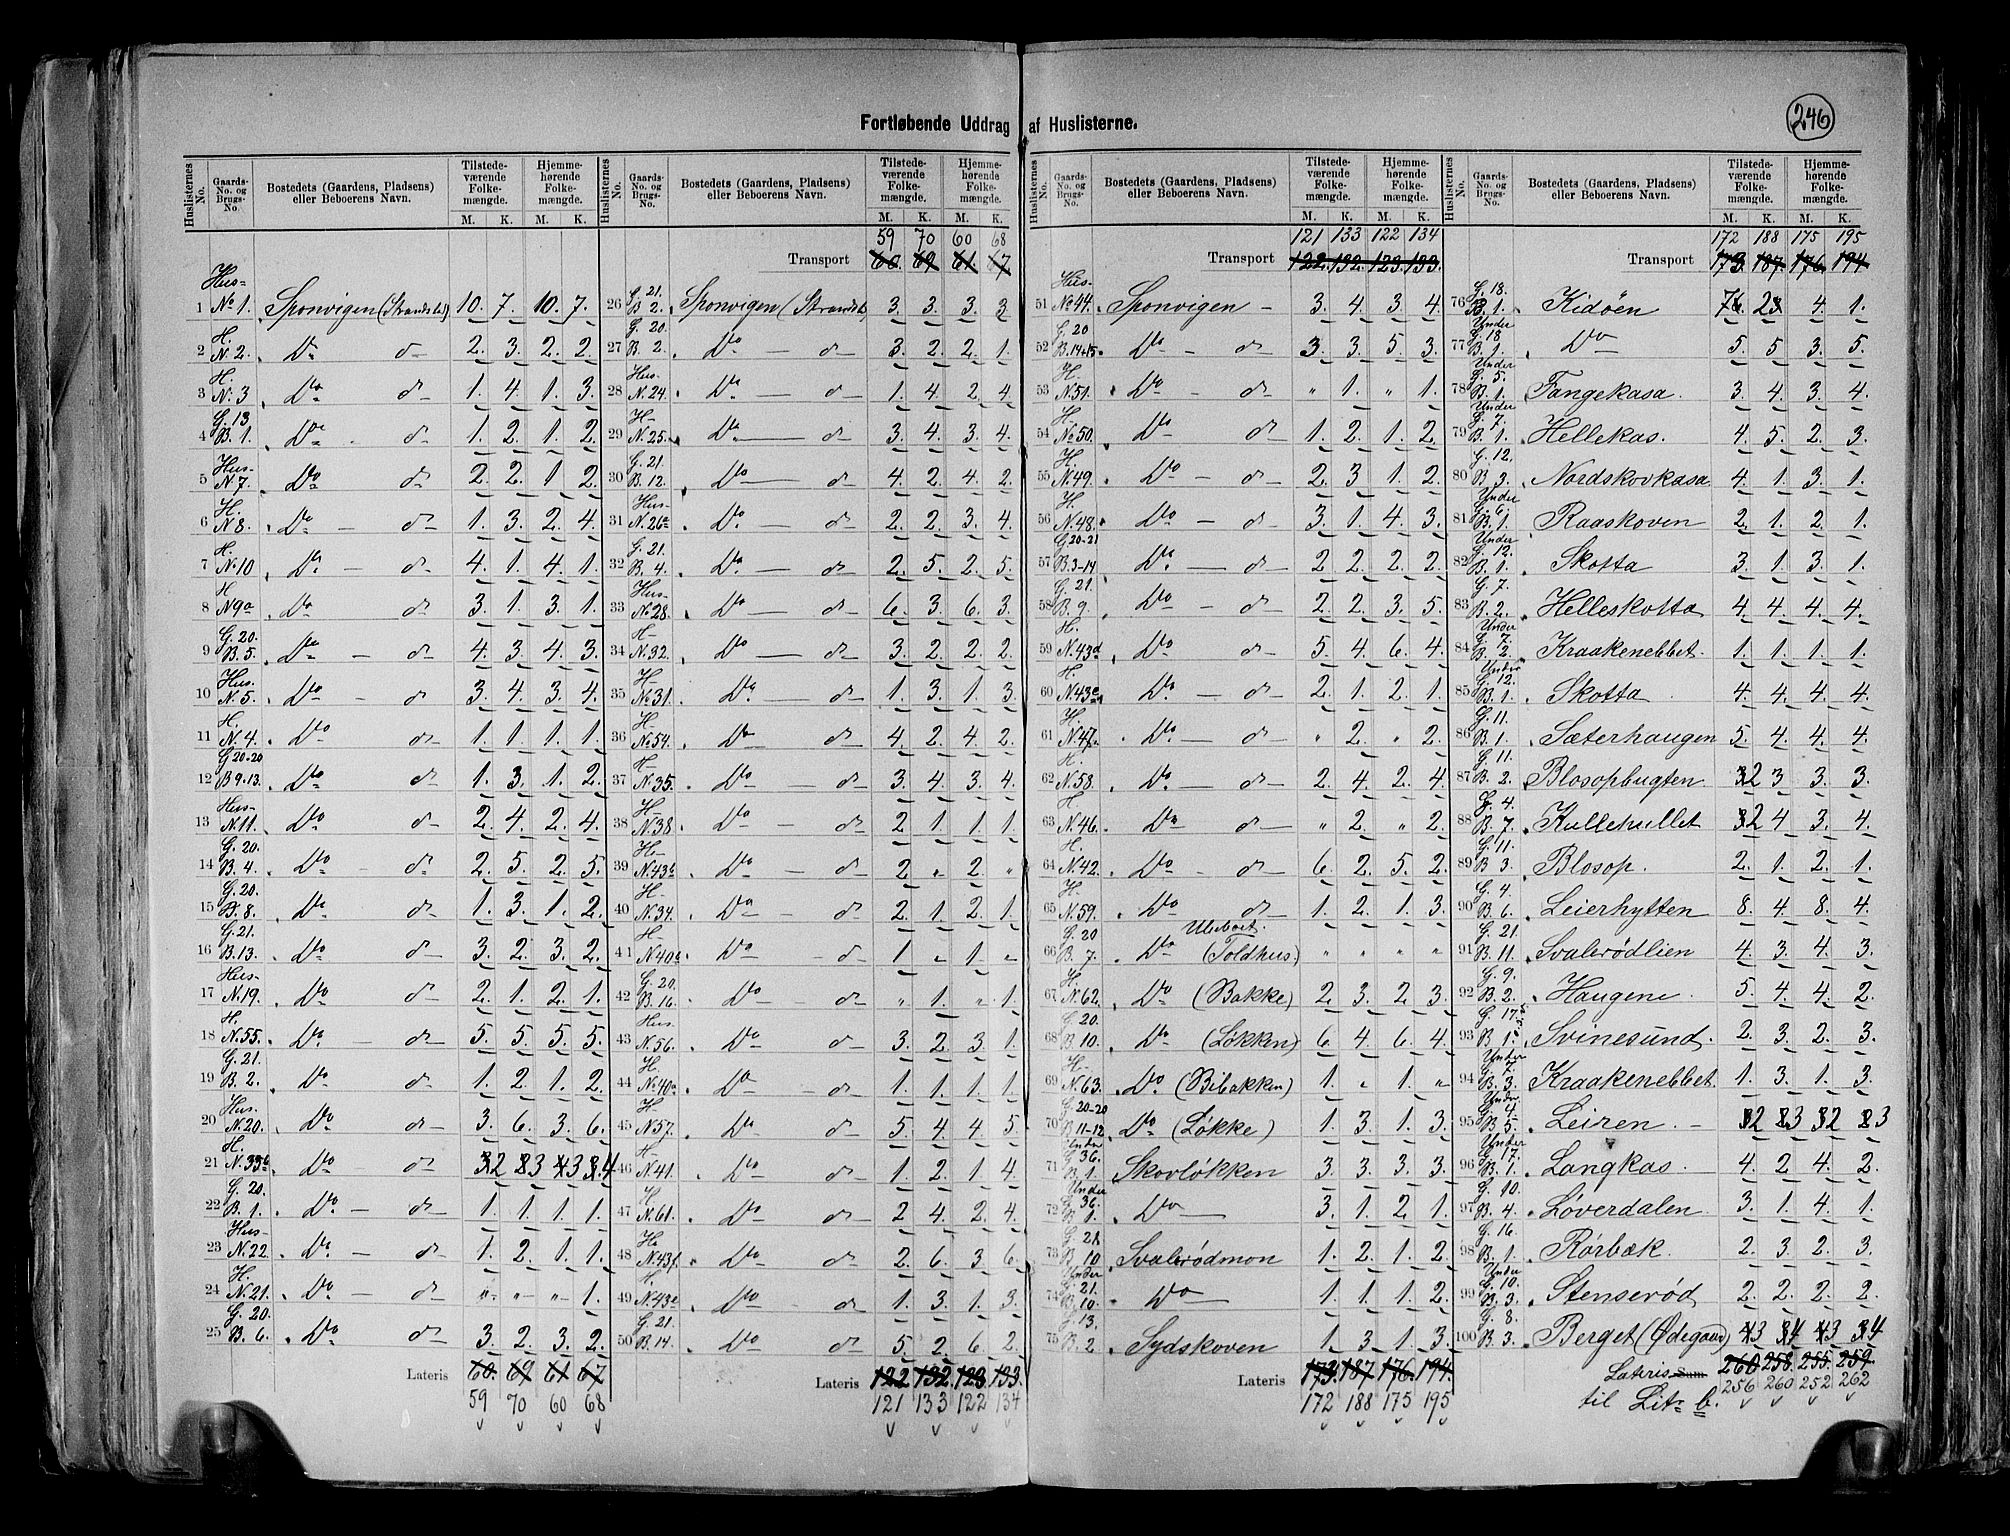 246
Fortløbende Uddrag af Huslisterne.
Huslisternes No. Gaards-No. og Brugs-No. Bostedets (Gaardens, Pladsens) eller Beboerens Navn. Tilstedeværende Folkemængde. M. K. Hjemmehørende Folkemængde. M. K.
1 Hus-No 1. Sponvigen (Strandsted) 10. 7. 10. 7.
2 H. N. 2. Do d- 2. 3. 2. 2.
3 H. N. 3 Do d- 1. 4. 1. 3.
4 G. 13. B. 1. Do d- 1. 2. 1. 2.
5 Hus-N. 7. Do d- 2. 2. 1 2.
6 H. N. 8. Do d- 1. 3. 2. 4.
7 H. N. 10 Do d- 4. 1. 4. 1.
8 H N. 9a Do d- 3. 1. 3. 1.
9 G. 20. B. 5. Do d- 4. 3. 4. 3.
10 Hus. N. 5. Do d- 3. 4. 3. 4.
11 H. N. 4. Do d- 1. 1. 1. 1.
12 G 20-20 B 9-13. Do d- 1. 3. 1. 2.
13 Hus-N. 11. Do d- 2. 4. 2. 4.
14 G. 20. B. 4. Do d- 2. 5. 2. 5.
15 G. 20. B. 8. Do d- 1. 3. 1. 2.
16 G. 21. B. 13. Do d- 3. 2. 3. 2.
17 Hus-N. 19. Do d- 2. 1. 2. 1.
18 H. N. 55. Do d- 5. 5. 5. 5.
19 G. 21. B. 2. Do d- 1. 2. 1. 2.
20 Hus. N. 20. Do d- 3. 6. 3. 6.
21 H. N. 33b Do d- 2 3 3 4
22 G. 20. B. 1. Do d- 1. 1. 1. 1.
23 Hus-N. 22. Do d- 1. 2. 1. 1.
24 H. N. 21. Do d- " " " 1.
25 G. 20. B. 6. Do d- 3. 2. 3. 2.
Lateris 60. 69 61 67
59 70 60 68
59 70 60 68
Transport 60. 69 61. 67
26 G. 21. B 2. Sponvigen (Strandst. 3. 3. 3. 3
27 G. 20. B. 2. Do d- 3. 2. 2. 1.
28 Hus. N. 24. Do d- 1. 4. 2. 4.
29 H. N. 25. Do d- 3. 4. 3. 4.
30 G. 21. B. 12. Do d- 4. 2. 4. 2
31 Hus-N. 26a Do d- 2. 2. 3. 4.
32 G. 21. B. 4. Do d- 2. 5. 2. 5.
33 Hus-No 28. Do d- 6. 3. 6. 3.
34 H-N. 32. Do d- 3. 2. 2. 2.
35 H-No 31. Do d- 1. 3. 1. 3.
36 H-N. 54. Do d- 4. 2. 4. 2.
37 H-N. 35. Do d- 3. 4. 3. 4.
38 H-N. 38. Do d- 2 1. 1. 1.
39 H-N. 43b Do d- 2 " 2. "
40 H N. 34. Do d- 2. 1. 2. 1.
41 H- N. 40b Do d- 1 " 1. "
42 G. 20. B. 16. Do d- " 1. " 1.
43 Hus. N. 56. Do d- 3. 2. 3. 1
44 H. No 40a Do d- 1. 1. 1. 1.
45 H N. 57. Do d- 5. 4. 4. 5
46 H-N. 41. Do d- 1. 2. 1. 4
47 H. N. 61. Do d- 2 4. 2. 4.
48 H. N. 43f. Do d- 2 6. 3 6.
49 H. N. 43e Do d- 1. 3. 1. 3.
50 G. 21. B. 14. Do d- 5. 2. 6. 2.
Lateris 122 132. 123. 133.
121 133 122 134
121 133 122 134
Transport 122. 132. 123. 133.
51 Hus-No 44. Sponvigen - 3. 4. 3. 4.
52 G. 20 B. 14+15. Do - d- 3. 3. 5. 3.
53 H. N. 51. Do - d- " 1. " 1.
54 H. No 50. Do d- 1. 2. 1. 2.
55 H. N. 49. Do - d- 2. 3 1. 2.
56 H. N. 48. Do - d- 3. 1. 4. 3.
57 G 20-21 B. 3-14 Do - d- 2 2 2. 2.
58 G. 21. B. 9. Do - d- 2. 2. 3. 5.
59 H. N. 43d Do d- 5. 4. 6. 4.
60 H. N. 43c Do - d- 2. 1. 2. 1.
61 H. N. 47. Do - d- " 2. " 2.
62 H. N. 58. Do - d- 2. 4. 2. 4.
63 H N. 46. Do d- " 2. " 2.
64 H. N. 42. Do - d- 6. 2. 5. 2.
65 H-N. 59. Do d- 1. 2. 1. 3.
66 G. 20 B. 7. Do Ubeboet. (Toldhus) " " " "
67 H. N. 62. Do (Bakke) 2. 3. 2. 3.
68 G. 20. B. 10. Do (Løkken) 6. 4. 6. 4.
69 H-N. 63. Do (Bibakken) 1. " 1. "
70 G. 20-20 B 11-12. Do (Løkke) 1. 3. 1. 3.
71 Under G. 36. B. 1. Skovløkken 3. 3. 3. 3.
72 Under G. 36. B 1. Do 3. 1. 2. 1.
73 G. 21. B. 10 Svalerødmon 1. 2. 1. 2.
74 Under G. 21. B. 10. Do 1. 1. 1. 2.
75 G. 13. B. 2 Sydskoven 1 3. 1. 3.
Lateris 173. 187. 176. 194.
172 188 175 195
172 188 175 195
Transport 173. 187. 176. 194
76 G. 18. B. 1. Kidöen 7 2 4. 1.
77 Under G. 18 B. 1. Do 5. 5 3. 5.
78 Under G. 5. B. 1. Fangekasa. 3. 4. 3. 4.
79 Under G. 7. B. 1. Hellekas. 4. 5. 2. 3.
80 G. 12. B. 3. Nordskovkasa 4. 1. 3. 1.
81 Under G. 6. B. 1. Raaskoven 2. 1. 2. 1.
82 Under G. 12. B. 1. Skotta 3. 1. 3. 1.
83 G. 7. B. 2. Helleskotta 4. 4. 4. 4.
84 Under G. 7. B. 2. Kraakenebbet. 1. 1. 1. 1.
85 Under G. 12. B. 1. Skotta 4. 4. 4. 4.
86 G. 11. B. 1. Sæterhaugen 5. 4. 4. 4.
87 G. 11. B. 2. Blosopbugten 2 3 3. 3.
88 G. 4. B. 7. Kullehullet 2 4 3. 4.
89 G. 11. B. 3. Blosop. 2. 1. 2. 1.
90 G. 4. B. 6. Leierhytten 8. 4. 8. 4.
91 G. 21. B. 11. Svalerødlien 4. 3. 4. 3.
92 G. 9. B. 2. Haugene. 5. 4. 4. 2.
93 G. 17. B. 1. Svinesund. 2. 3. 2. 3.
94 Under G. 7. B. 3. Kraakenebbet. 1. 3. 1. 3.
95 Under G. 4. B. 5. Leiren. - 2 3 2 3
96 Under G. 17. B. 1. Langkas. 4. 2 4. 2.
97 G. 10. B. 4. Løverdalen 3. 1. 4. 1.
98 G. 16. B. 1. Rørbæk. 2. 3. 2. 3.
99 Under G. 10. B. 3. Stenserød 2. 2. 2. 2.
100 G. 8. B. 3. Berget (Ødegaard) 3 4 3 4
Lateris Sum 260. 258. 255. 259.
256 260 252 262
til Litr b.